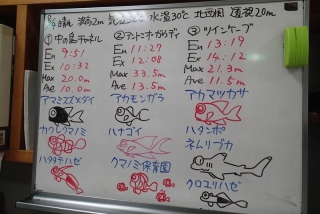 8/9 晴れ 波高2m 気温32℃ 水温30℃ 北西風 透視20m
① 中の島チャネル
En 9:51
Ex 10:32
Max 20.0m
Ave 10.0m
アマミスズメダイ
カクレクマノミ
ハタタテハゼ
② アントニオガウディ
En 11:27
Ex 12:08
Max 33.5m
Ave 13.5m
アカモンガラ
ハナゴイ
クマノミ保育園
③ ツインケーブ
En 13:19
Ex 14:12
Max 21.3m
Ave 11.5m
アカマツカサ
ハタンポ
ネムリブカ
クロユリハゼ